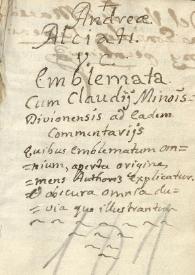 Andreæ
Alciati.
V. C.
Emblemata.
Cum Claudij Minois
Divionensis ad Eadem
Commentarijs
Quibus Emblematum om-
nium, aperta origine,
mens Authoris Explicatur.
Et obscura omnia du-
via que illustrantur